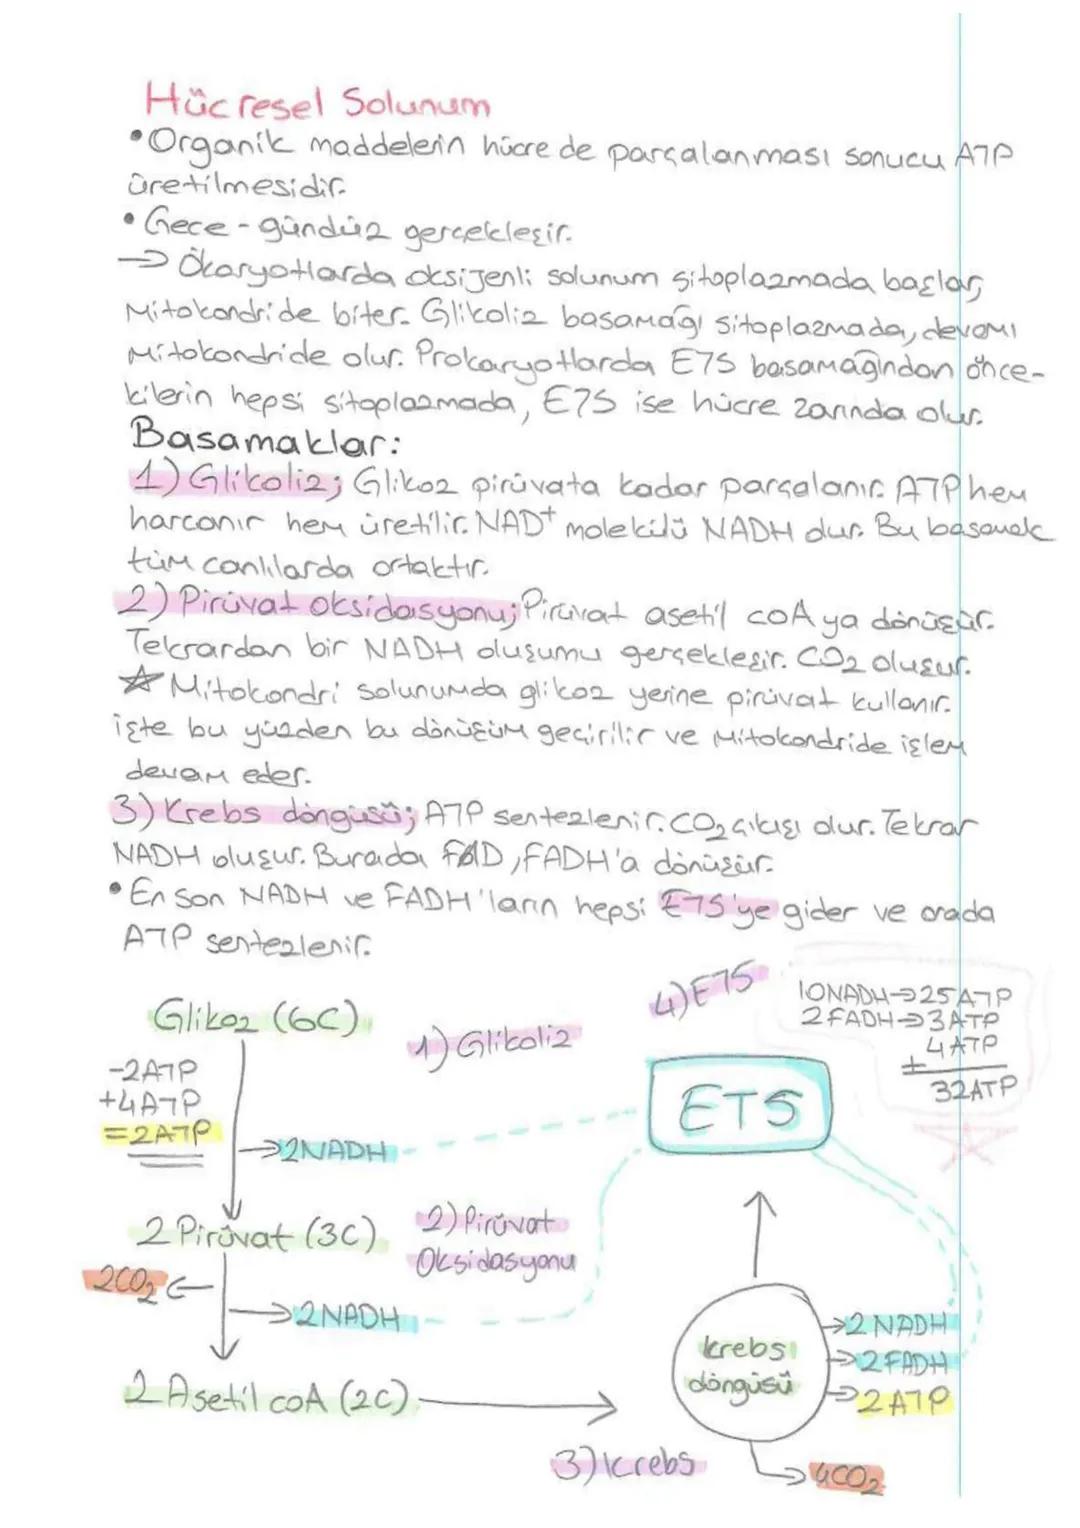 Hücresel Solunum
• Organik maddelerin hücre de parçalanması sonucu ATP
üretilmesidir.
• Gece - gündüz gerçekleşir.
→ Ökaryotlarda oksijenli solunum sitoplazmada başlar,
Mitokondri de biter. Glikoliz basamağı sitoplazmada, devamı
Mitokondride olur. Prokaryotlarda ETS basamağından önce-
kilerin hepsi sitoplazmada, ETS ise hücre zarında olur.
Basamaklar:
1) Glikoliz; Glikoz pirüvata kadar parçalanır. ATP hem
harcanır hem üretilir. NAD⁺ molekülü NADH olur. Bu basamak
tüm canlılarda ortaktır.
2) Pirüvat oksidasyonu; Pirüvat asetil coA ya dönüşür.
Tekrardan bir NADH oluşumu gerçekleşir. CO₂ oluşur.
☆ Mitokondri solunumda glikoz yerine pirüvat kullanır.
işte bu yüzden bu dönüşüm geçirilir ve Mitokondride işlem
devam eder.
3) Krebs döngüsü; ATP sentezlenir. CO₂ çıkışı olur. Tekrar
NADH oluşur. Burada FAD, FADH'a dönüşür.
• En son NADH ve FADH'ların hepsi ETS'ye gider ve orada
ATP sentezlenir.
Glikoz (6C)
-2ATP
+4ATP
=2ATP
→2NADH
1) Glikoliz
4) ETS
10NADH→25ATP
2FADH→3ATP
4ATP
+
32ATP
ETS
2 Pirüvat (3C)
2) Pirüvat
Oksidasyonu
2CO₂ ←
→2NADH
2 Asetil coA (2C)
3) Krebs
krebs
döngüsü
→2NADH
→2FADH
→2ATP
→4CO₂